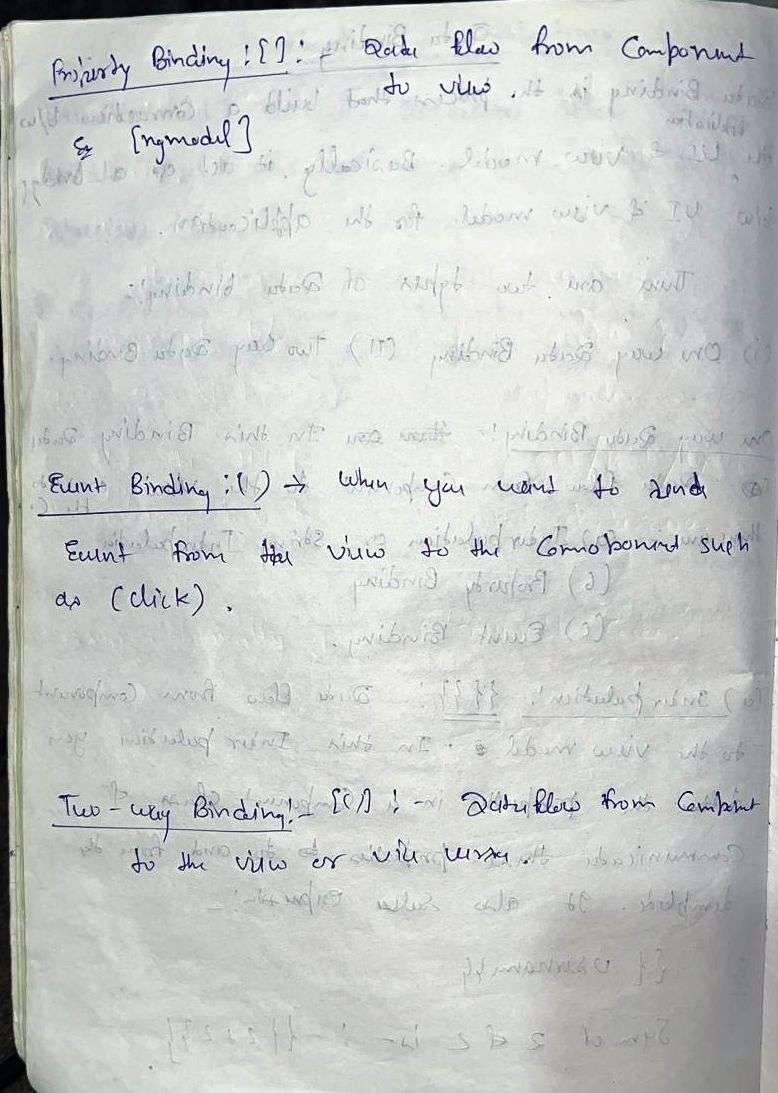 Property Binding :[ ] :- Data flow from Component
to view.
Ex [ngmodel]
Event Binding :( ) → When you want to send
Event from the view to the Comnoponent such
as (click).
Two-way Binding:- [( )] :- Data flow from Compont
to the view or vice versa.